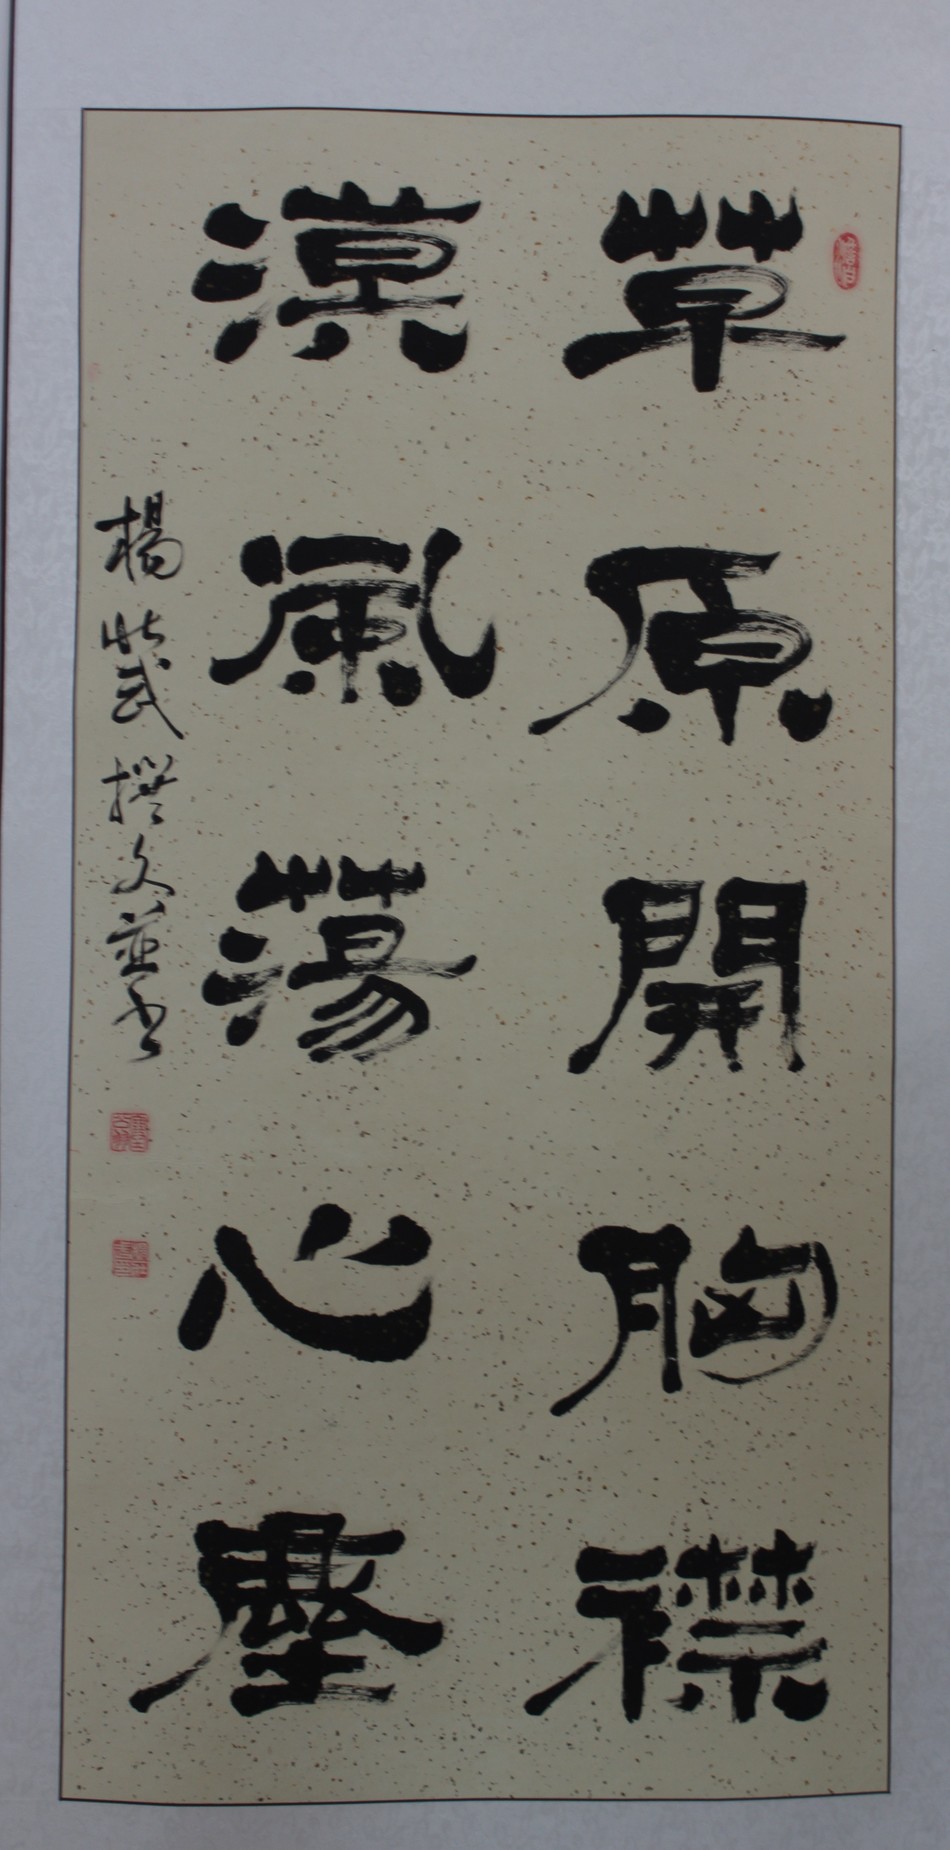 草原開胸襟
漠風蕩心塵
楊 武撰文並書